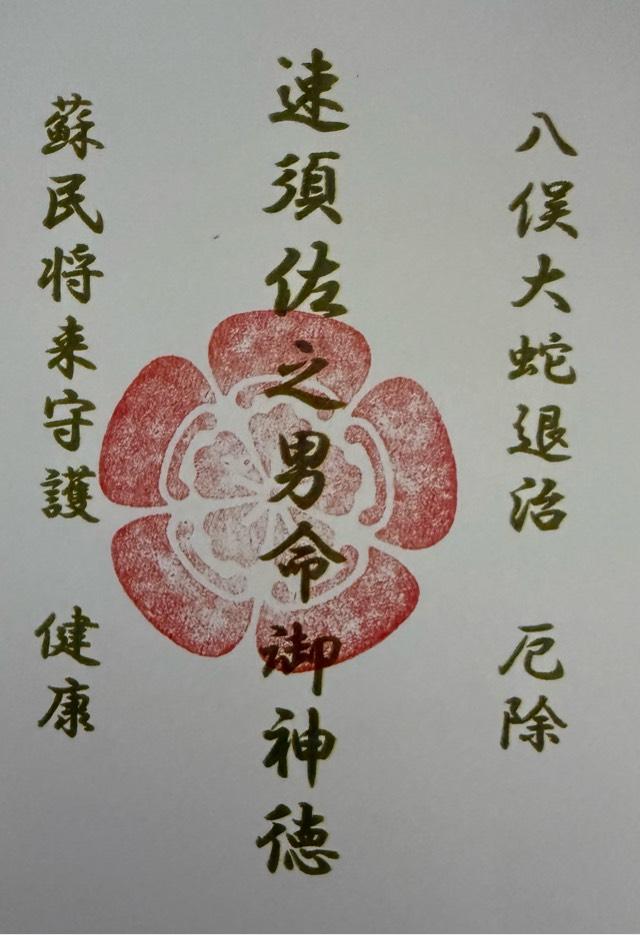 八俣大蛇退治 厄除
速須佐之男命御神徳
蘇民将来守護 健康